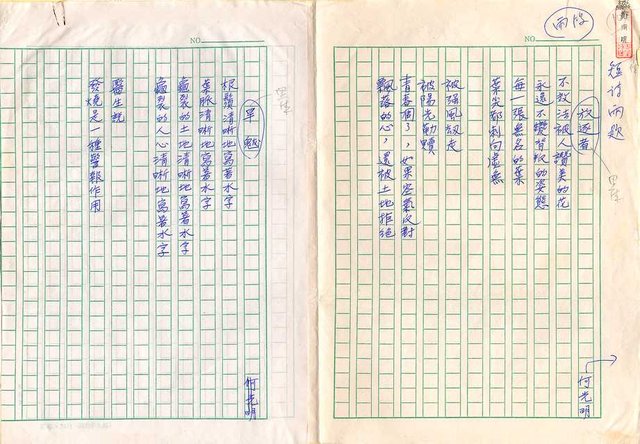 短詩兩題
雨波
放逐者
何光明
永遠不變背叛的姿態
每一張無名的葉
葉尖都刺向虛無
被強風奴役
被陽光勒贖
青春獨了,如果空氣反對
飄落的心,還被土地拒絕
NO.
旱魃
何光明
根鬚清晰地寫著水字
葉脈清晰地寫著水字
龜裂的土地清晰地寫著水字
龜裂的人心清晰地寫著水字
醫生說
發燒是一種警報作用
NO.